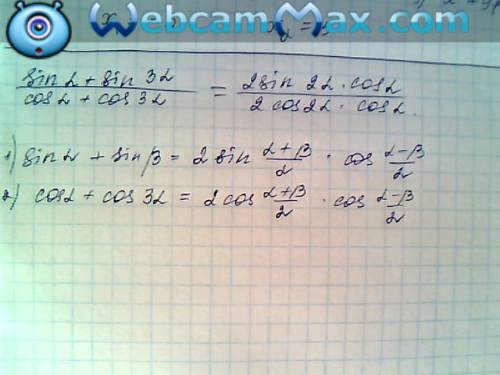 WebcamMax.com
(sin α + sin 3α)/(cos α + cos 3α) = (2 sin 2α · cos α)/(2 cos 2α · cos α)
1) sin α + sin β = 2 sin (α+β)/2 · cos (α-β)/2
2) cos α + cos 3α = 2 cos (α+β)/2 · cos (α-β)/2